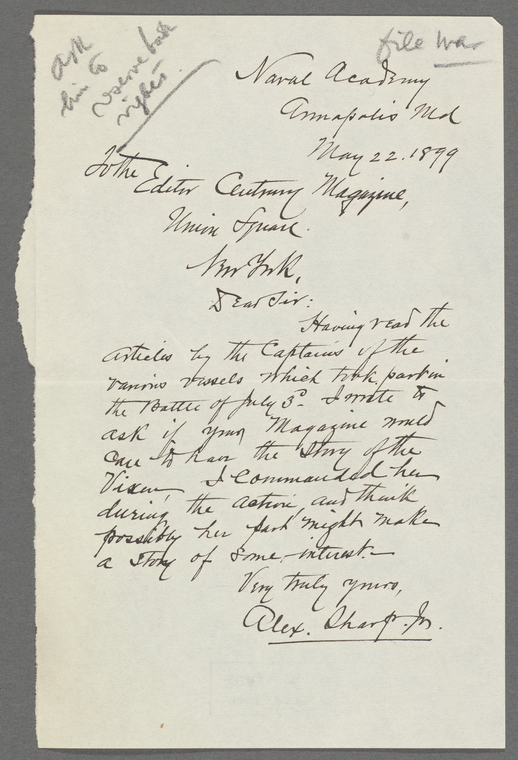 ask
him to
reserve book
rights
file War
Naval Academy
Annapolis Md
May 22. 1899
To the
Editor Century Magazine,
Union Square.
New York,
Dear Sir:
Having read the
articles by the Captains of the
various vessels which took part in
the Battle of July 3d. I write to
ask if your Magazine would
care to have the Story of the
Vixen, I commanded her
during the action, and think
possibly her part might make
a story of some interest.
Very truly yours,
Alex. Sharp. Jr.